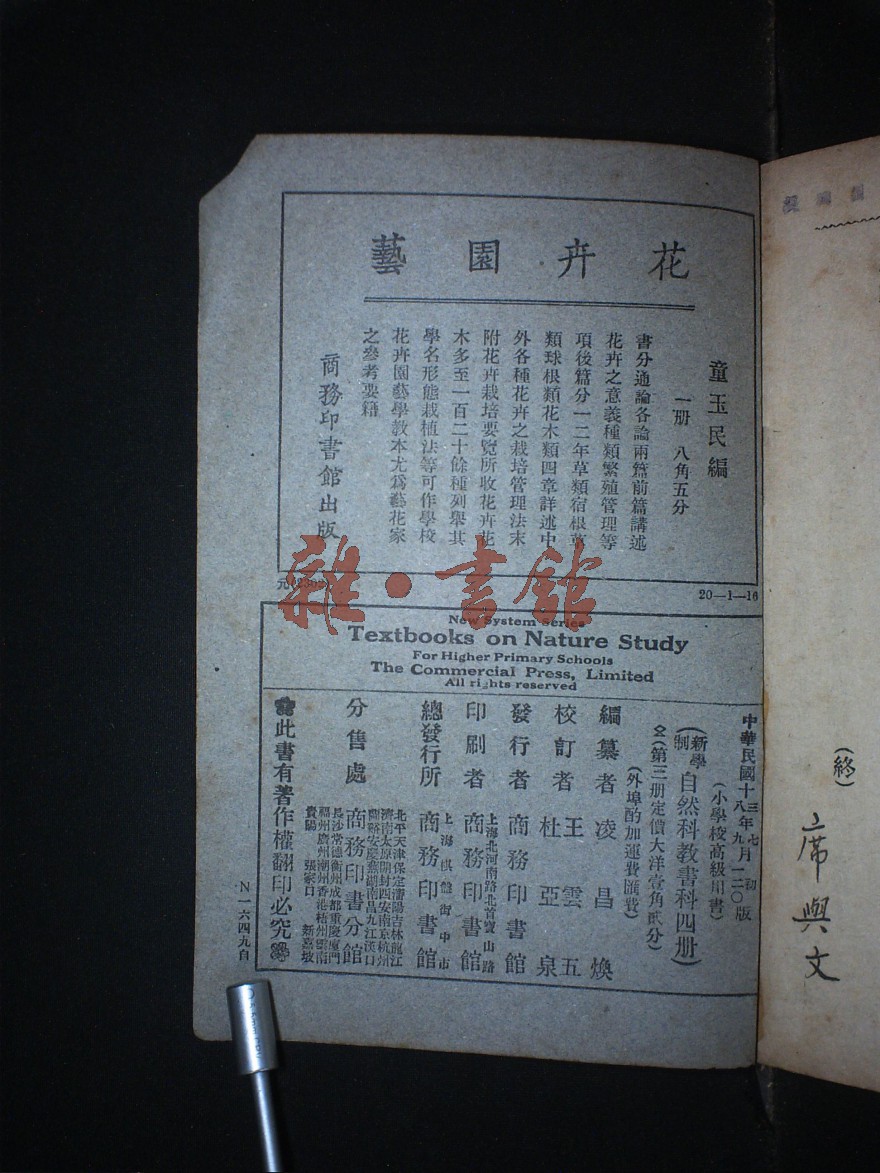 花卉園藝
童玉民編
一册 八角五分
書分通論各論兩篇前篇講述
花卉之意義種類繁殖管理等
項後篇分一二年草類宿根草
類球根類花木類四章詳述中
外各種花卉之栽培管理法末
附花卉栽培要覽所收花卉花
木多至一百二十餘種列舉其
學名形態栽植法等可作學校
花卉園藝學教本尤爲藝花家
之參考要籍
商務印書館出版
20—1—16
雜·書館
New System Series
Textbooks on Nature Study
For Higher Primary Schools
The Commercial Press, Limited
All rights reserved
中華民國十三年七月初版
八年九月一二〇版
(小學校高級用書)
(新學制自然科教書科四册)
(第三册定價大洋壹角貳分)
(外埠酌加運費匯費)
編纂者 凌昌煥
校訂者 王雲五
杜亞泉
發行者 商務印書館
上海北河南路北首寶山路
印刷者 商務印書館
上海棋盤街中市
總發行所 商務印書館
北平天津保定瀋陽吉林龍江
濟南太原開封西安南京杭州
蘭谿安慶蕪湖南昌九江漢口
分售處 商務印書分館
長沙常德衡州成都重慶廈門
福州廣州潮州香港梧州雲南
貴陽 張家口 新嘉坡
此書有著作權翻印必究
N一六四九自
(終)
席與文